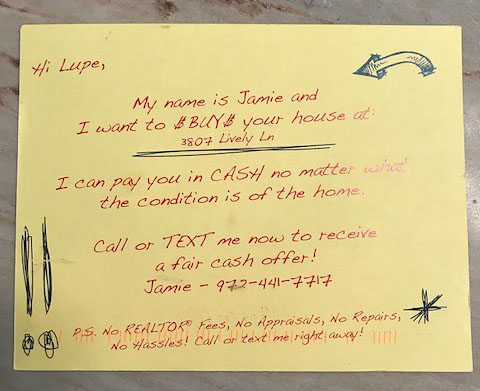 Hi Lupe,
My name is Jamie and
I want to $BUY$ your house at:
3807 Lively Ln
I can pay you in CASH no matter what
the condition is of the home.
Call or TEXT me now to receive
a fair cash offer!
Jamie - 972-441-7717
P.S. No REALTOR® Fees, No Appraisals, No Repairs,
No Hassles! Call or text me right away!